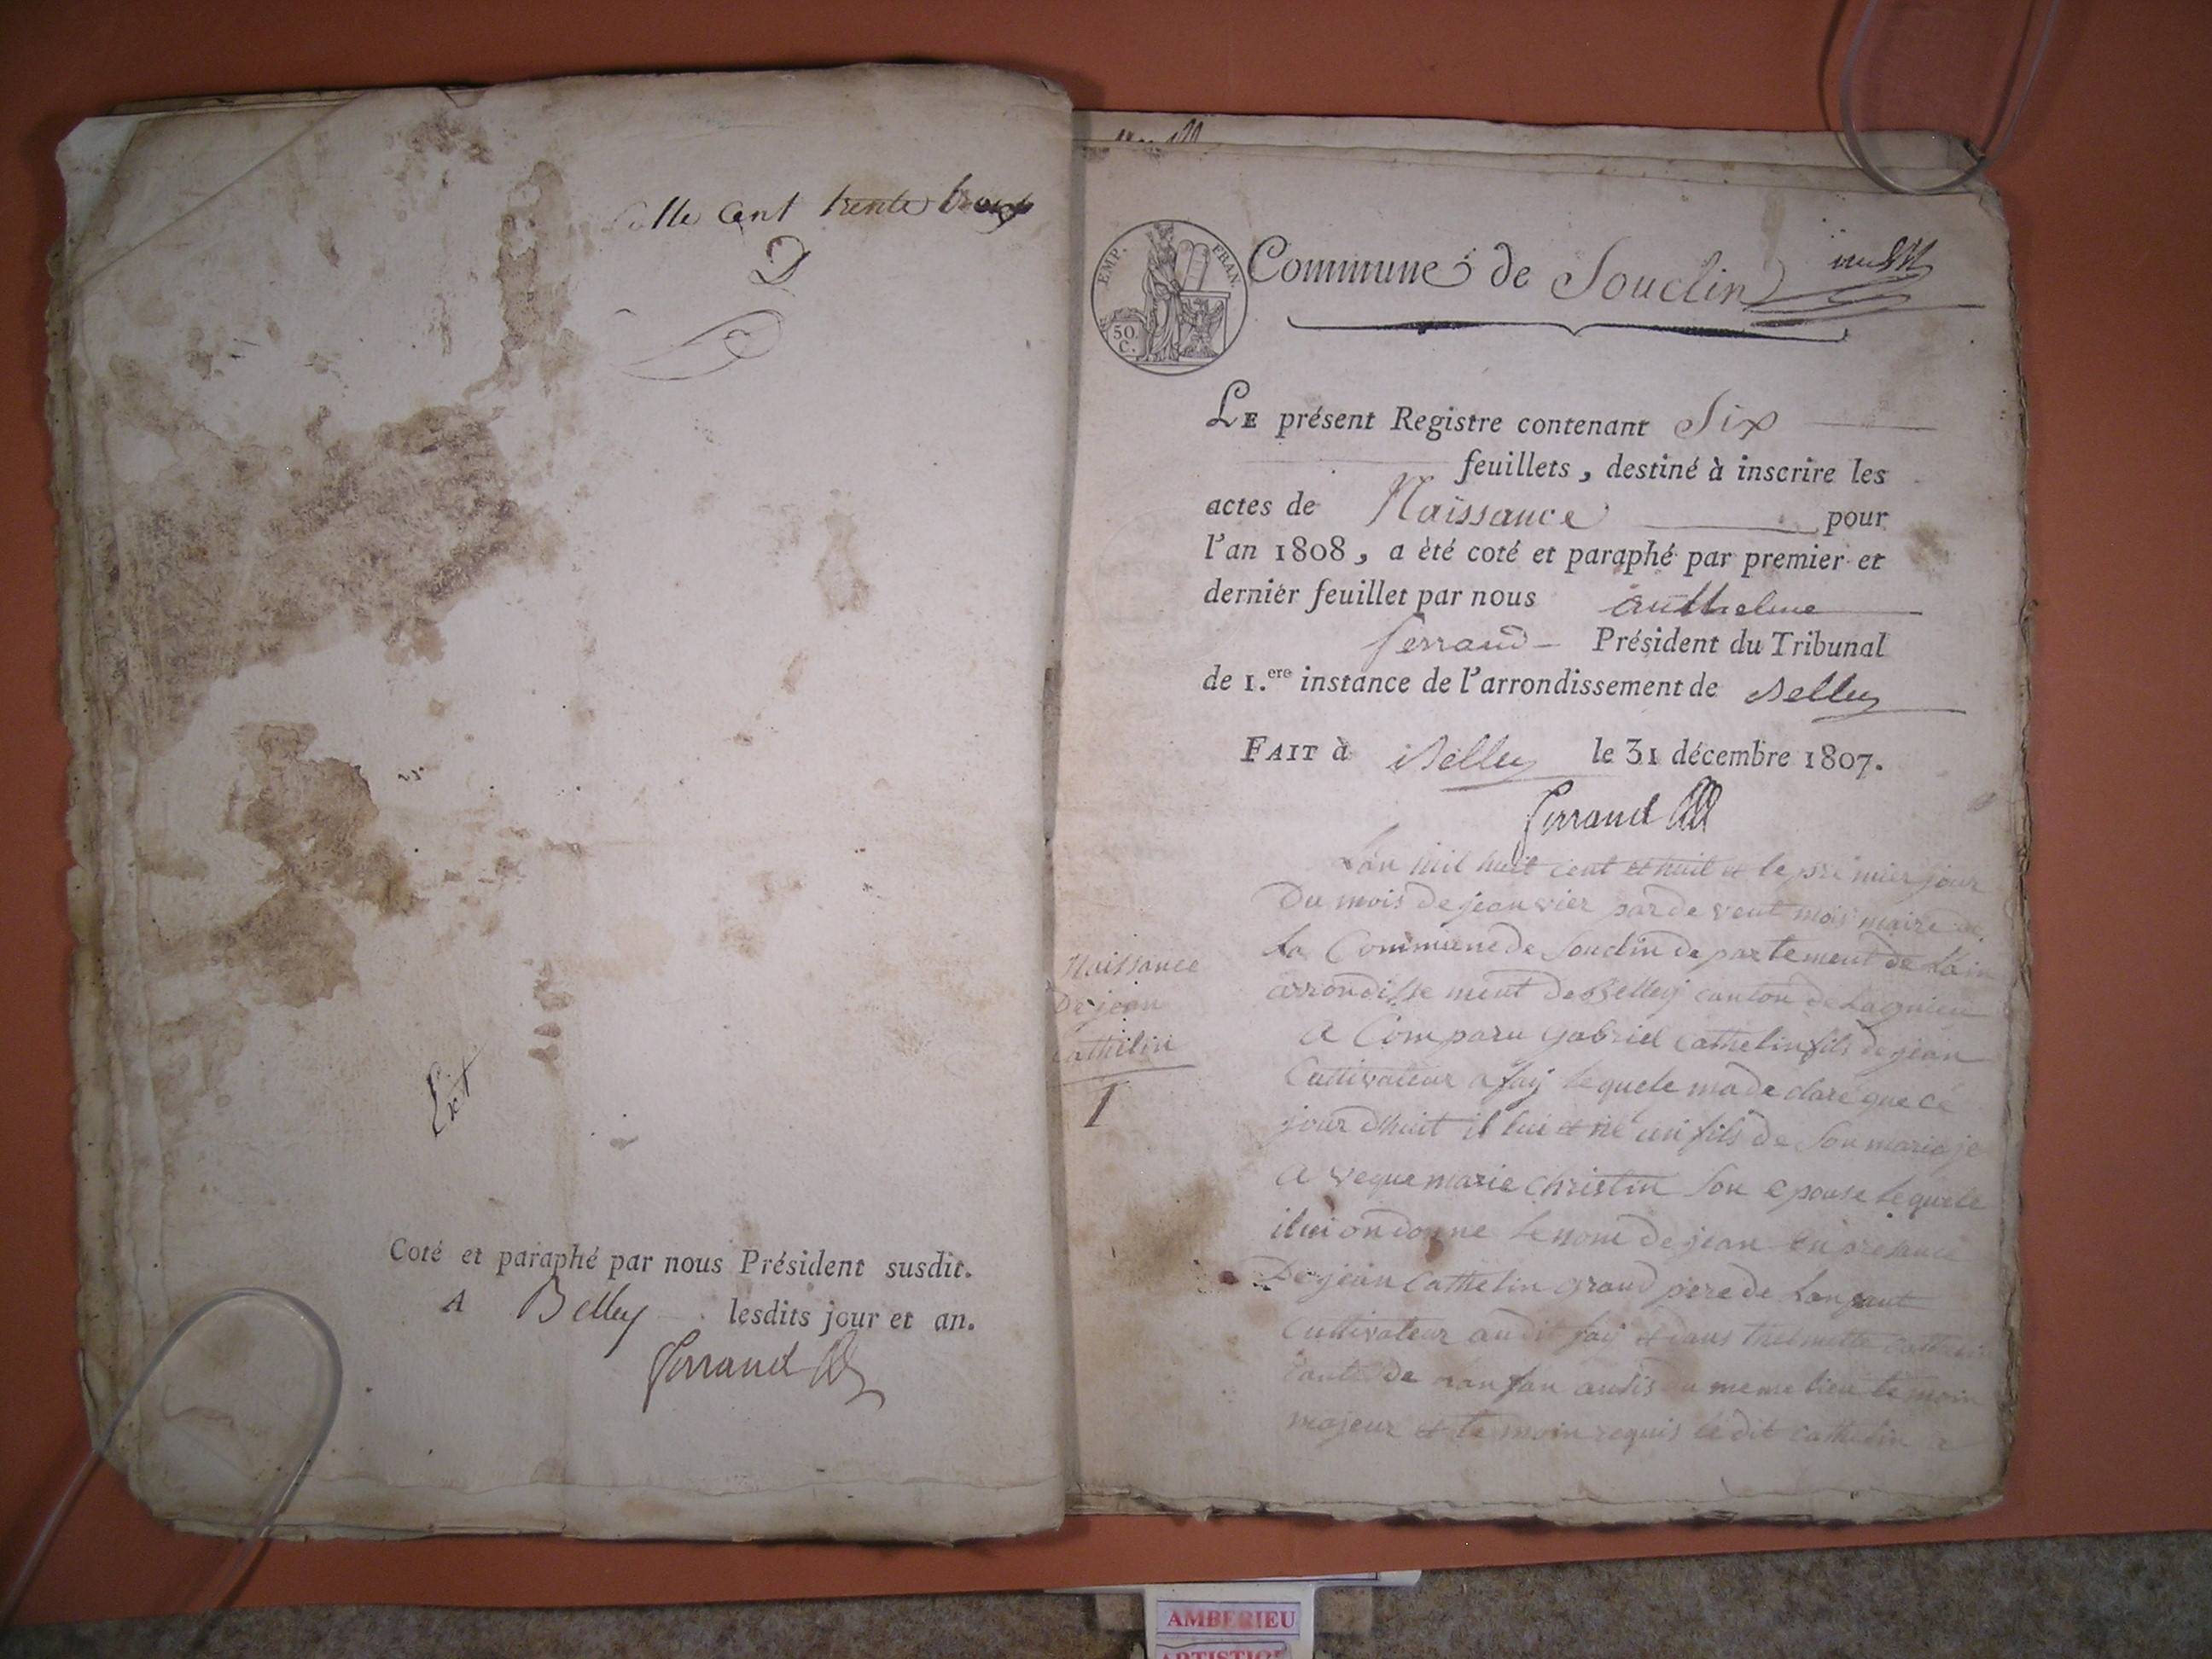 cent trente trois
D
Coté et paraphé par nous Président susdit.
A Belley lesdits jour et an.
Ferrand
EMP. FRAN.
50. C.
Commune de Souclin
LE présent Registre contenant Six
feuillets, destiné à inscrire les
actes de Naissance pour
l'an 1808, a été coté et paraphé par premier et
dernier feuillet par nous anthelme
ferrand Président du Tribunal
de 1.ere instance de l'arrondissement de Belley
FAIT à Belley le 31 décembre 1807.
Ferrand
Naissance
De jean
cathelin
1
Lan mil huit cent et huit et le premier jour
Du mois de jeanvier par de vent moi maire de
La Commune de Souclin departement de Lain
arrondisse ment de Belley canton de Lagnieu
a Comparu gabriel Cathelin fils de jean
Cultivateur a fay lequele ma de claré que ce
jour dhuit il lui et né un fils de son mariaje
a veque marie christin son epouse lequele
ilui on donne le nom de jean en presence
De jean Cathelin grand pere de Lanfant
Cultivateur au dit fay et
tante de lanfan audis meme lieu temoin
majeur et temoin requis le dit cathelin a
AMBERIEU
ARTISTIQUE